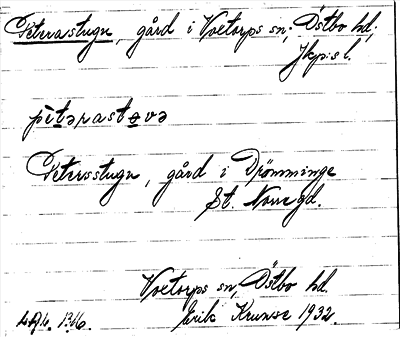 Peterastugu, gård i Voetorps sn; Östbo hd;
Jkp:s l.
pìtərastovə
Petersstugu, gård i Drömminge
St. Norregd.
Voetorps sn, Östbo hd.
Erik Krunse 1932.